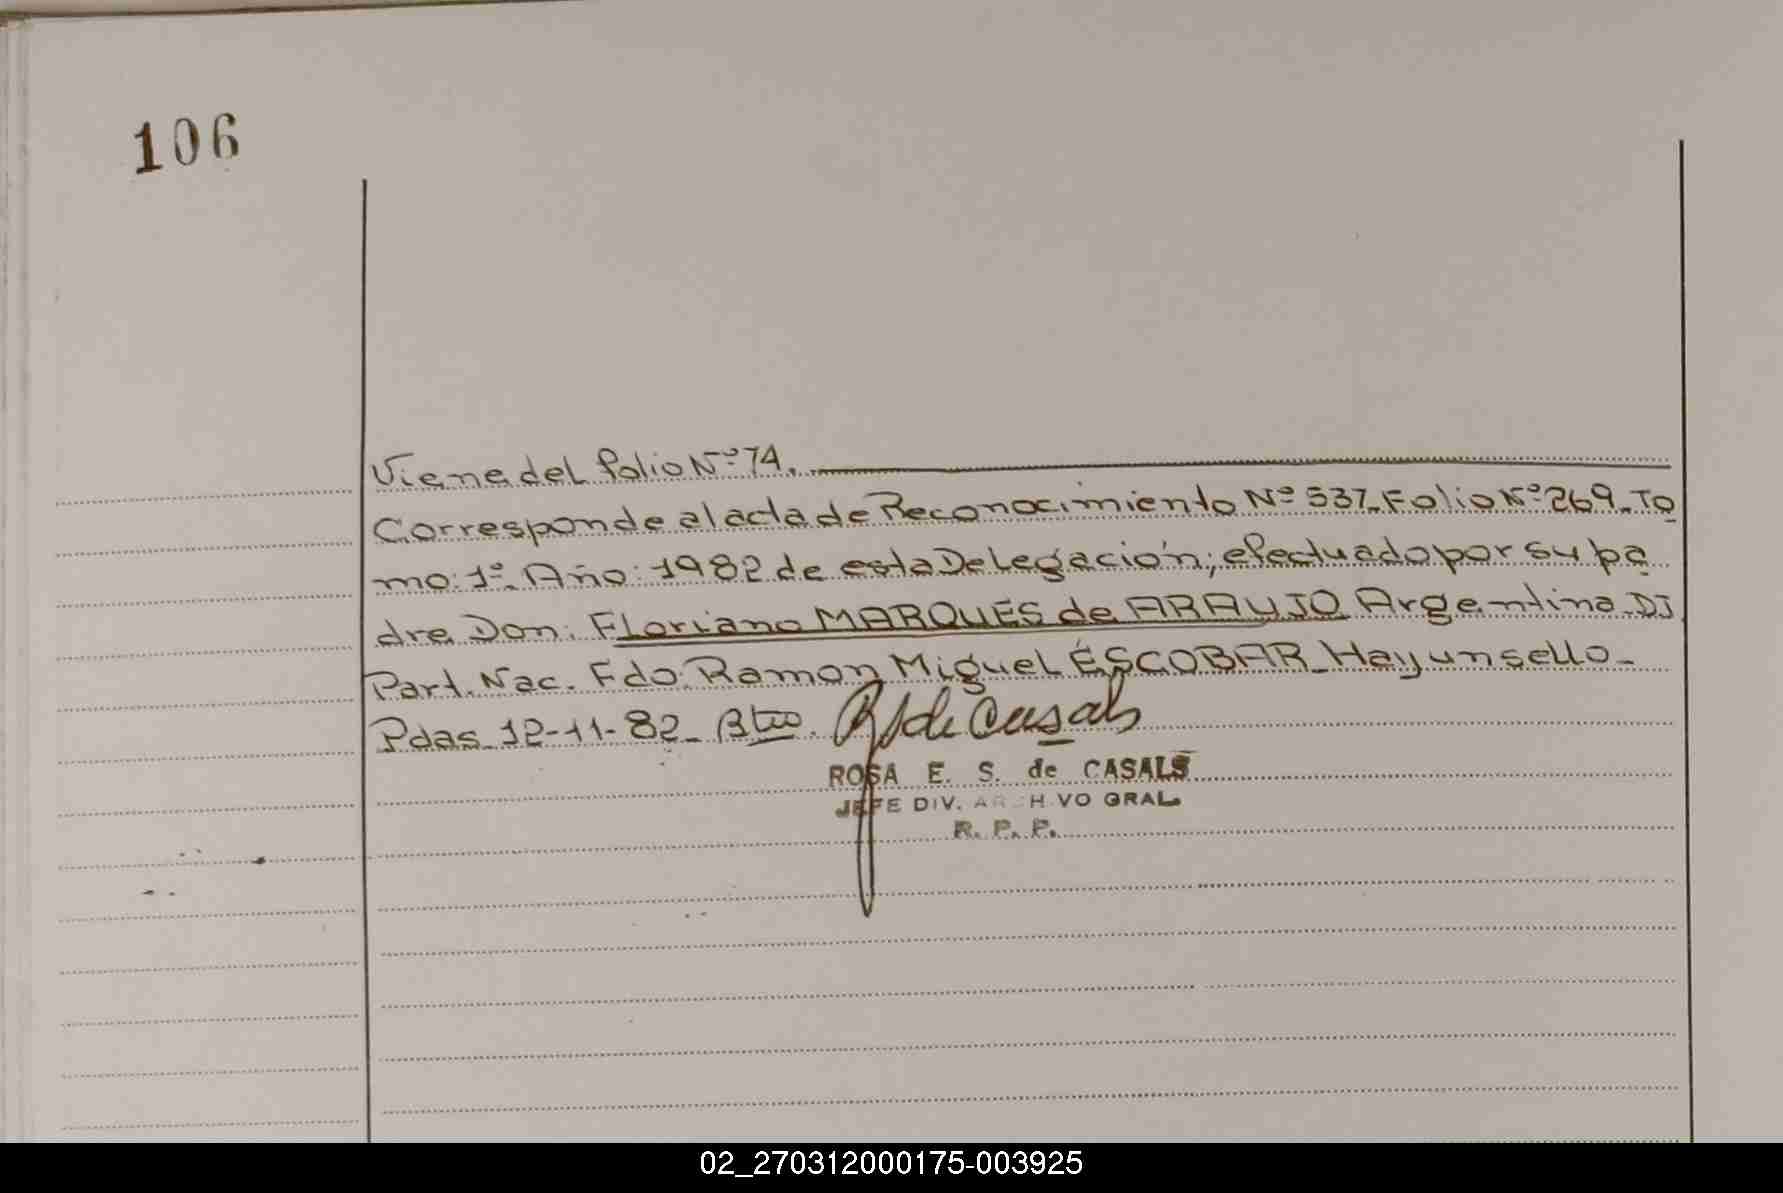 106
Viene del folio Nº 74.
Corresponde al acta de Reconocimiento Nº 537_Folio Nº 269_To
mo: 1º_ Año: 1982 de esta Delegación; efectuado por su pa
dre Don: Floriano MARQUES de ARAUJO Argentina_DJ
Part. Nac. Fdo: Ramon Miguel ESCOBAR_Hay un sello_
Pdas_12-11-82_
ROSA E. S. de CASALS
JEFE DIV. ARCHIVO GRAL.
R. P. P.
02_270312000175-003925